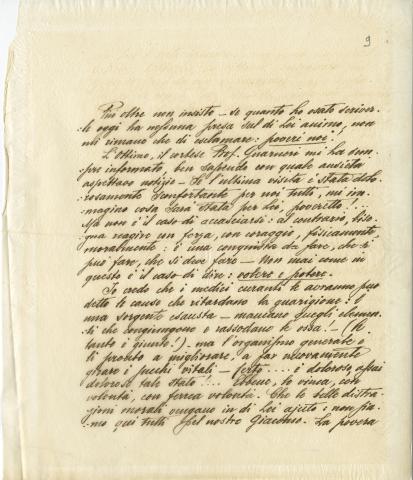 9
Più oltre non insisto – se quanto ho osato scriver-
le oggi ha nessuna presa sul di Lei animo, non
mi rimane che di esclamare: poveri noi!
L'Ottimo, il cortese Prof. Guarnero mi ha sem-
pre informato, ben sapendo con quale ansietà
aspettavo notizie – E l'ultima visita è stata dolo-
rosamente sconfortante per noi tutti, mi im-
magino cosa sarà stata per Lei, poveretto!...
Ma non è il caso di accasciarsi: al contrario, biso-
gna reagire con forza, con coraggio, fisicamente,
moralmente: è una conquista da fare, che si
può fare, che si deve fare – Non mai come in
questo è il caso di dire: volere è potere.
Io credo che i medici curanti le avranno pur
detto le cause che ritardano la guarigione: è
una sorgente esausta – mancano quegli elemen-
ti che congiungono e rassodano le ossa! – (In-
tanto è giunto!) – ma l'organismo generale è
lì pronto a migliorare, a far nuovamente
girare i succhi vitali – Certo .... è doloroso, assai
doloroso tale stato!... Ebbene, lo vinca, con
volontà, con ferrea volontà. Che le belle distra-
zioni morali vengano in di Lei ajuto: non sia-
mo qui tutti? Del nostro Giacomo. La povera